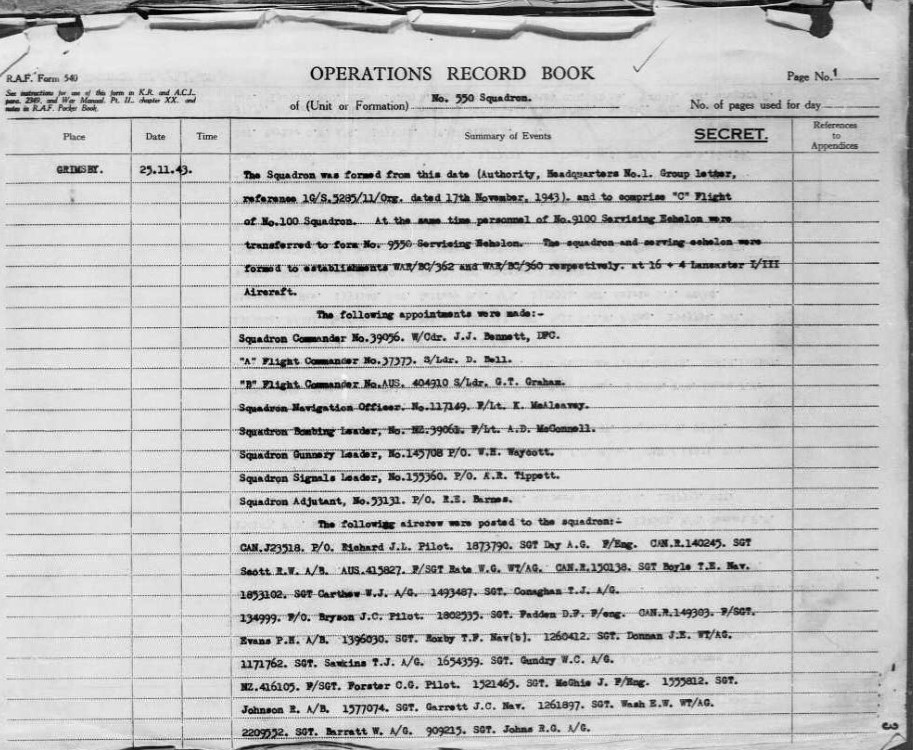 R.A.F. Form 540
OPERATIONS RECORD BOOK
Page No. 1
See instructions for use of this form in K.R. and A.C.I.,
para. 2349, and War Manual, Pt. II., chapter XX., and
notes in R.A.F. Pocket Book.
of (Unit or Formation) No. 550 Squadron.
No. of pages used for day
Place
Date
Time
Summary of Events
SECRET.
References
to
Appendices
GRIMSBY. 25.11.43. The Squadron was formed from this date (Authority, Headquarters No.1. Group letter,
reference 1G/S.5285/11/Org. dated 17th November, 1943). and to comprise "C" Flight
of No.100 Squadron. At the same time personnel of No.9100 Servicing Echelon were
transferred to form No. 9550 Servicing Echelon. The squadron and serving echelon were
formed to establishments WAR/BC/362 and WAR/BC/360 respectively. at 16 + 4 Lancaster I/III
Aircraft.
The following appointments were made:-
Squadron Commander No.39056. W/Cdr. J.J. Bennett, DFC.
"A" Flight Commander No.37373. S/Ldr. D. Bell.
"B" Flight Commander No.AUS. 404910 S/Ldr. G.T. Graham.
Squadron Navigation Officer. No.117149. F/Lt. K. McAleavey.
Squadron Bombing Leader, No. NZ.39061. F/Lt. A.D. McConnell.
Squadron Gunnery Leader, No.145708 P/O. W.H. Waycott.
Squadron Signals Leader, No.155360. P/O. A.R. Tippett.
Squadron Adjutant, No.53131. P/O. R.E. Barnes.
The following aircrew were posted to the squadron:-
CAN.J23518. P/O. Richard J.L. Pilot. 1873790. SGT Day A.G. F/Eng. CAN.R.140245. SGT
Scott R.W. A/B. AUS.415827. F/SGT Bate W.G. WT/AG. CAN.R.150138. SGT Boyle T.E. Nav.
1853102. SGT Carthew W.J. A/G. 1493487. SGT. Conaghan T.J. A/G.
134999. F/O. Bryson J.C. Pilot. 1802535. SGT. Fadden D.F. F/eng. CAN.R.149303. F/SGT.
Evans P.H. A/B. 1396030. SGT. Roxby T.F. Nav(b). 1260412. SGT. Donnan J.E. WT/AG.
1171762. SGT. Sawkins T.J. A/G. 1654359. SGT. Gundry W.C. A/G.
NZ.416105. F/SGT. Forster C.G. Pilot. 1521465. SGT. McGhie J. F/Eng. 1555812. SGT.
Johnson R. A/B. 1577074. SGT. Garrett J.C. Nav. 1261897. SGT. Wash E.W. WT/AG.
2209552. SGT. Barratt W. A/G. 909215. SGT. Johns R.G. A/G.